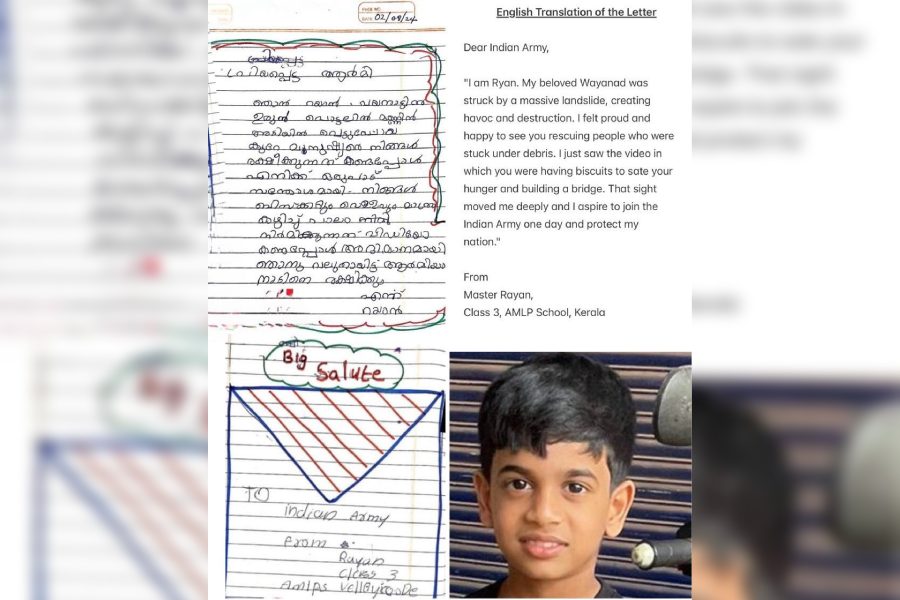 PAGE NO.
DATE 02/08/24
പ്രിയപ്പെട്ട ആർമി
ഞാൻ റയാൻ വയനാട്ടിൽ
ഉരുൾ പൊട്ടലിൽ മണ്ണിൻ
അടിയിൽ പെട്ടുപോയ
കുറേ മനുഷ്യരെ നിങ്ങൾ
രക്ഷിക്കുന്നത് കണ്ടപ്പോൾ
എനിക്ക് ഒരുപാട്
സന്തോഷമായി. നിങ്ങൾ
ബിസ്ക്കറ്റും വെള്ളവും
കഴിച്ച് പാലം
നിർമിക്കുന്നത് വിഡിയോ
കണ്ടപ്പോൾ അഭിമാനമായി
ഞാനും വലുതായിട്ട്
നാടിനെ രക്ഷിക്കും
എന്ന്
റയാൻ
Big Salute
TO
Indian Army
From
Rayan
Class 3
English Translation of the Letter
Dear Indian Army,
"I am Ryan. My beloved Wayanad was
struck by a massive landslide, creating
havoc and destruction. I felt proud and
happy to see you rescuing people who were
stuck under debris. I just saw the video in
which you were having biscuits to sate your
hunger and building a bridge. That sight
moved me deeply and I aspire to join the
Indian Army one day and protect my
nation."
From
Master Rayan,
Class 3, AMLP School, Kerala